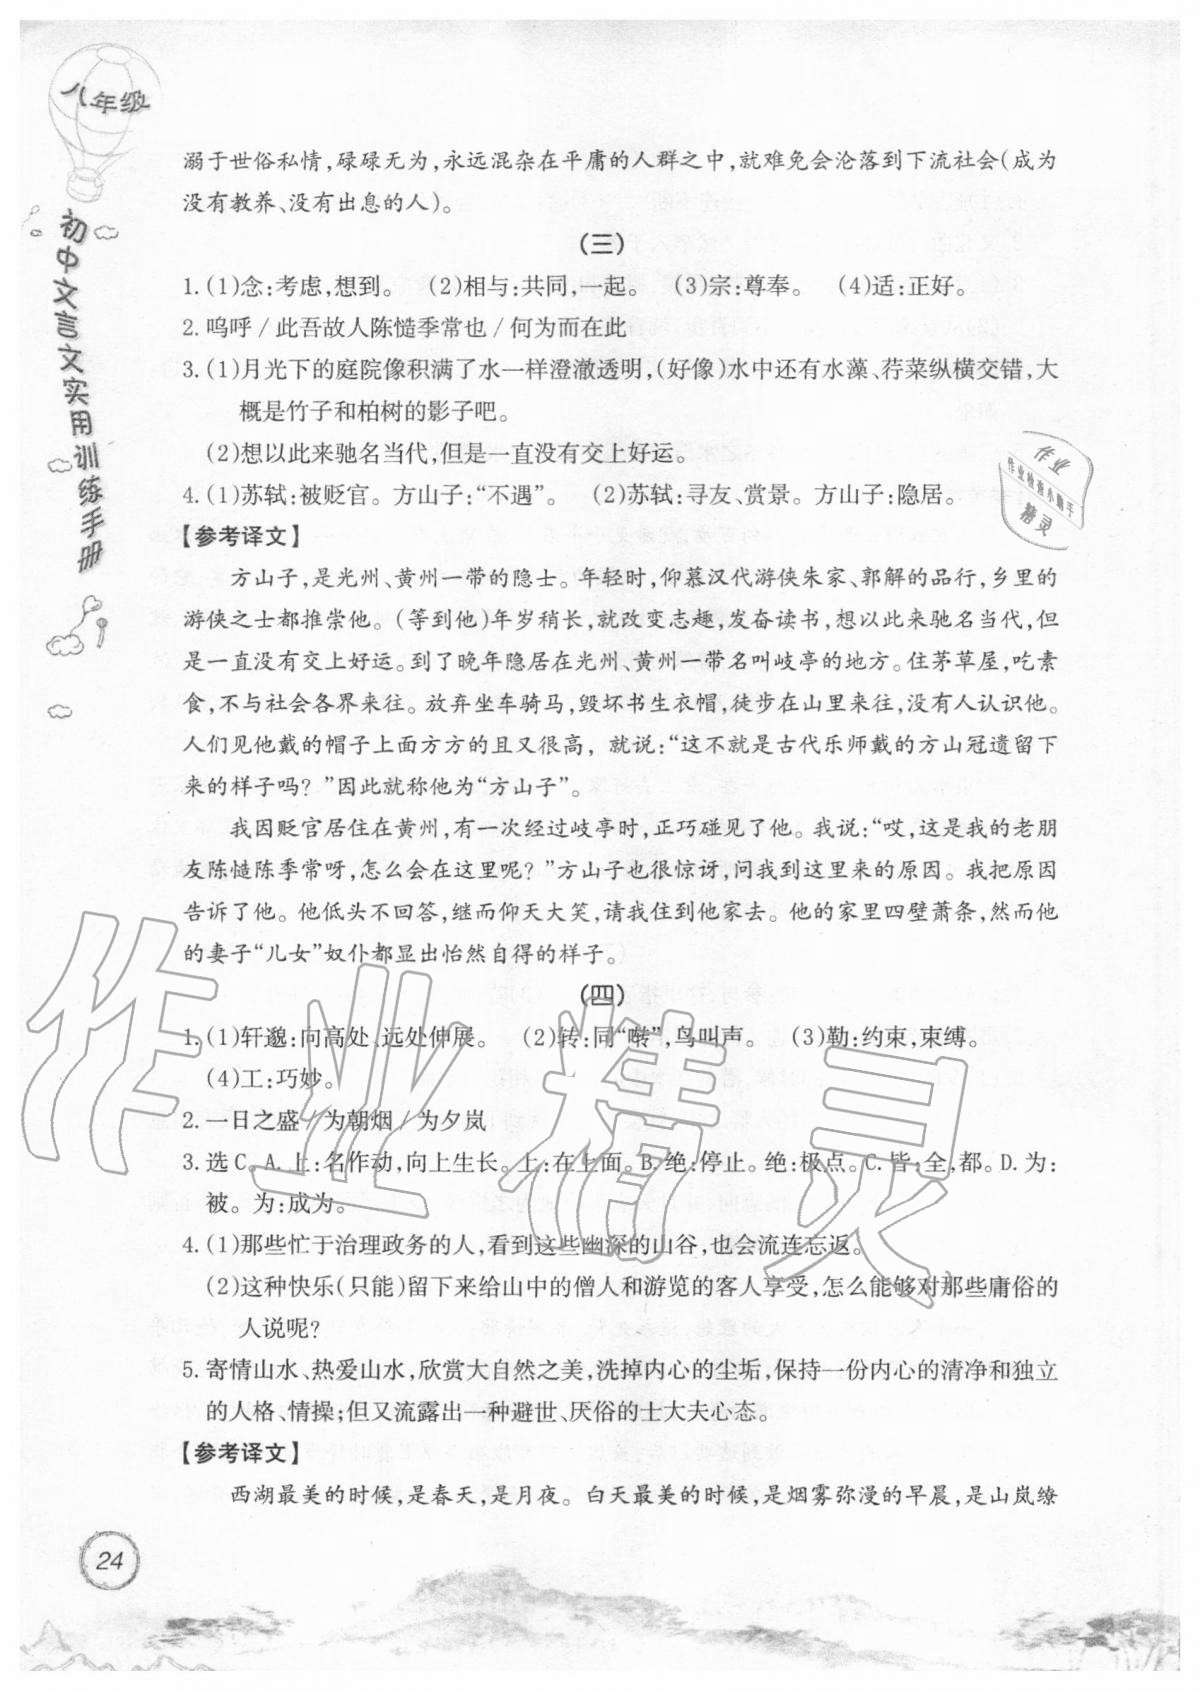 八年级
初中文言文实用训练手册
溺于世俗私情,碌碌无为,永远混杂在平庸的人群之中,就难免会沦落到下流社会(成为
没有教养、没有出息的人)。
(三)
1. (1)念:考虑,想到。 (2)相与:共同,一起。 (3)宗:尊奉。 (4)适:正好。
2. 呜呼/此吾故人陈慥季常也/何为而在此
3. (1)月光下的庭院像积满了水一样澄澈透明,(好像)水中还有水藻、荇菜纵横交错,大
概是竹子和柏树的影子吧。
(2)想以此来驰名当代,但是一直没有交上好运。
4. (1)苏轼:被贬官。方山子:“不遇”。 (2)苏轼:寻友、赏景。方山子:隐居。
【参考译文】
方山子,是光州、黄州一带的隐士。年轻时,仰慕汉代游侠朱家、郭解的品行,乡里的
游侠之士都推崇他。(等到他)年岁稍长,就改变志趣,发奋读书,想以此来驰名当代,但
是一直没有交上好运。到了晚年隐居在光州、黄州一带名叫岐亭的地方。住茅草屋,吃素
食,不与社会各界来往。放弃坐车骑马,毁坏书生衣帽,徒步在山里来往,没有人认识他。
人们见他戴的帽子上面方方的且又很高,就说:“这不就是古代乐师戴的方山冠遗留下
来的样子吗?”因此就称他为“方山子”。
我因贬官居住在黄州,有一次经过岐亭时,正巧碰见了他。我说:“哎,这是我的老朋
友陈慥陈季常呀,怎么会在这里呢?”方山子也很惊讶,问我到这里来的原因。我把原因
告诉了他。他低头不回答,继而仰天大笑,请我住到他家去。他的家里四壁萧条,然而他
的妻子“儿女”奴仆都显出怡然自得的样子。
(四)
1. (1)轩邈:向高处、远处伸展。 (2)转:同“啭”,鸟叫声。 (3)勒:约束,束缚。
(4)工:巧妙。
2. 一日之盛/为朝烟/为夕岚
3. 选C。A.上:名作动,向上生长。上:在上面。B.绝:停止。绝:极点。C.皆:全,都。D.为:
被。为:成为。
4. (1)那些忙于治理政务的人,看到这些幽深的山谷,也会流连忘返。
(2)这种快乐(只能)留下来给山中的僧人和游览的客人享受,怎么能够对那些庸俗的
人说呢?
5. 寄情山水、热爱山水,欣赏大自然之美,洗掉内心的尘垢,保持一份内心的清净和独立
的人格、情操;但又流露出一种避世、厌俗的士大夫心态。
【参考译文】
西湖最美的时候,是春天,是月夜。白天最美的时候,是烟雾弥漫的早晨,是山岚缭
24
作业
作业检查小助手
精灵
作业精灵